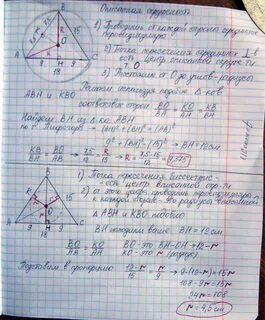 Описанная окружность
1) Проводим от каждой стороны срединные
перпендикуляры
2) Точка пересечения срединных ⊥ в
т. O - есть центр описанной окруж-ти
3) Построим от O до угла - радиусы
Рассмотрим подобие Δ-ков
ABH и KBO
соответствие сторон BO/AB = KO/AH = KB/BH
Найдем BH из Δ-ка ABH
по т. Пифагора → (BH)² + (AH)² = (AB)²
9² + (BH)² = 15² → BH = 12 см
KB/BH = BO/AB → 7,5/12 = R/15 → R = 7,5·15/12 = 9,375
1) Точка пересечения биссектрис -
- есть центр вписанной окр-ти
2) от этой цифры проводим перпендикуляр
к каждой стороне - это радиусы вписанной
Δ ABH и KBO подобны
BH находим выше BH = 12 см
BO/AB = KO/AH BO - это BH-OH → 12-r
KO - это r (радиус)
Подставим в пропорцию 12-r/15 = r/9 → 9·(12-r) = 15r
108-9r = 15r
24r = 108
r = 4,5 см
A B C H K O R r 15 9 18